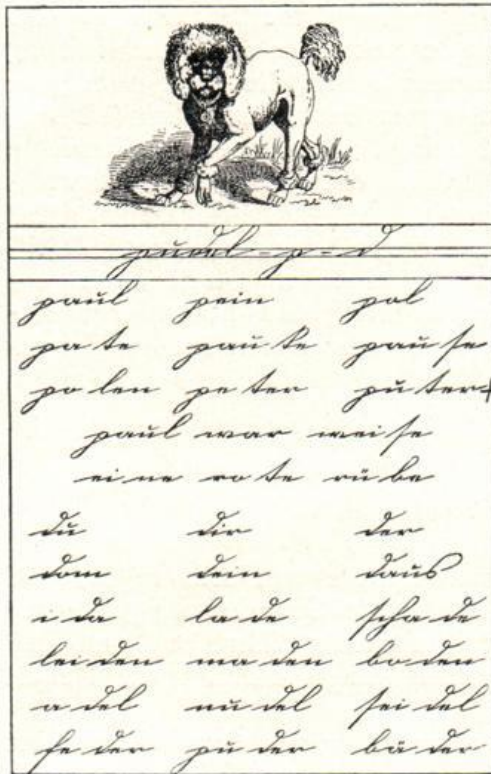 pudel - p - d
paul pein pol
pa te pau ke pau se
po len pe ter pu ter
paul war wei se
ei ne ro te rü be
du dir der
dom dein daus
i da la de scha de
lei den ma den bo den
a del nu del sei del
fe der pu der bä der